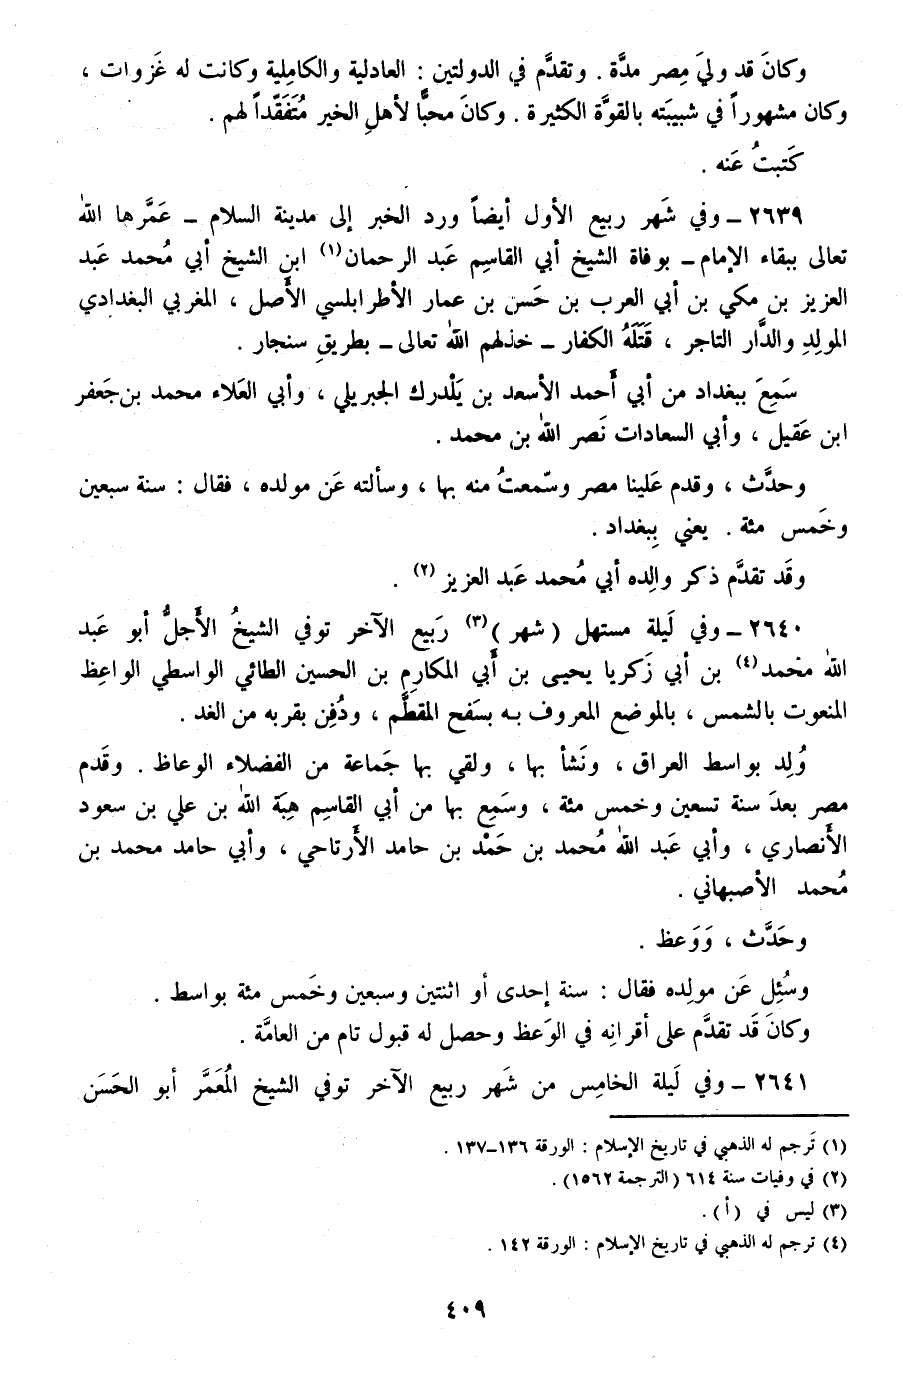 وكانَ قد وليَ مِصر مدَّة . وتقدَّم في الدولتين : العادلية والكامِلية وكانت له غَزوات ،
وكان مشهوراً في شبيبَته بالقوَّة الكثيرة . وكانَ محبًّا لأهلِ الخير مُتَفَقّداً لهم .
كَتبتُ عَنه .
٢٦٣٩ ــ وفي شَهر ربيع الأول أيضاً ورد الخبر إلى مدينة السلام ــ عَمَّرها اللهُ
تعالى ببقاء الإمام ــ بوفاة الشيخ أبي القاسِم عَبد الرحمان(١) ابنِ الشيخ أبي مُحمد عَبد
العزيز بن مكي بن أبي العرب بن حَسن بن عمار الأطرابلسي الأَصل ، المغربي البغدادي
المولِدِ والدَّار التاجر ، قَتَلَهُ الكفار ــ خذلهم اللهُ تعالى ــ بطريقِ سنجار .
سَمِعَ ببغداد من أبي أَحمد الأسعد بن يَلْدرك الجبريلي ، وأبي العَلاء محمد بن جَعفر
ابن عَقيل ، وأبي السعادات نَصر الله بن محمد .
وحدَّث ، وقدم عَلينا مصر وسّمعتُ منه بها ، وسألته عَن مولده ، فقال : سنة سبعين
وخَمس مئة . يعني بِبغداد .
وقَد تقدَّم ذكر والِده أبي مُحمد عَبد العزيز (٢) .
٢٦٤٠ ــ وفي لَيلة مستهل ( شهر )(٣) رَبيع الآخر توفي الشيخُ الأَجلُّ أبو عَبد
الله محمد(٤) بن أبي زَكريا يحيى بن أَبي المكارِم بن الحسين الطائي الواسطي الواعِظ
المنعوت بالشمس ، بالموضع المعروف به بسَفح المقطَّم ، ودُفِن بقربه من الغد .
وُلِد بواسط العراق ، ونَشأ بها ، ولقي بها جَماعة من الفضلاء الوعاظ . وقَدم
مصر بعدَ سنة تسعين وخمس مئة ، وسَمِع بها من أبي القاسِم هِبَة الله بن علي بن سعود
الأَنصاري ، وأبي عَبد الله مُحمد بن حَمْد بن حامد الأَرتاحي ، وأبي حامد محمد بن
مُحمد الأصبهاني .
وحَدَّث ، وَوَعظ .
وسُئِل عَن مولِده فقال : سنة إحدى أو اثنتين وسبعين وخَمس مئة بواسط .
وكانَ قَد تقدَّم على أقرانِه في الوَعظ وحصل له قبول تام من العامَّة .
٢٦٤١ ــ وفي لَيلة الخامِس من شَهر ربيع الآخر توفي الشيخ المُعَمَّر أبو الحَسَن
(١) تَرجم له الذهبي في تاريخ الإسلام : الورقة ١٣٦ــ١٣٧ .
(٢) في وفيات سنة ٦١٤ (الترجمة ١٥٦٢) .
(٣) ليس في (أ) .
(٤) ترجم له الذهبي في تاريخ الإسلام : الورقة ١٤٢ .
٤٠٩